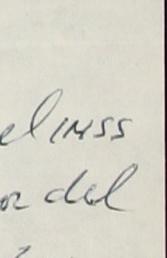 el INSS
or del